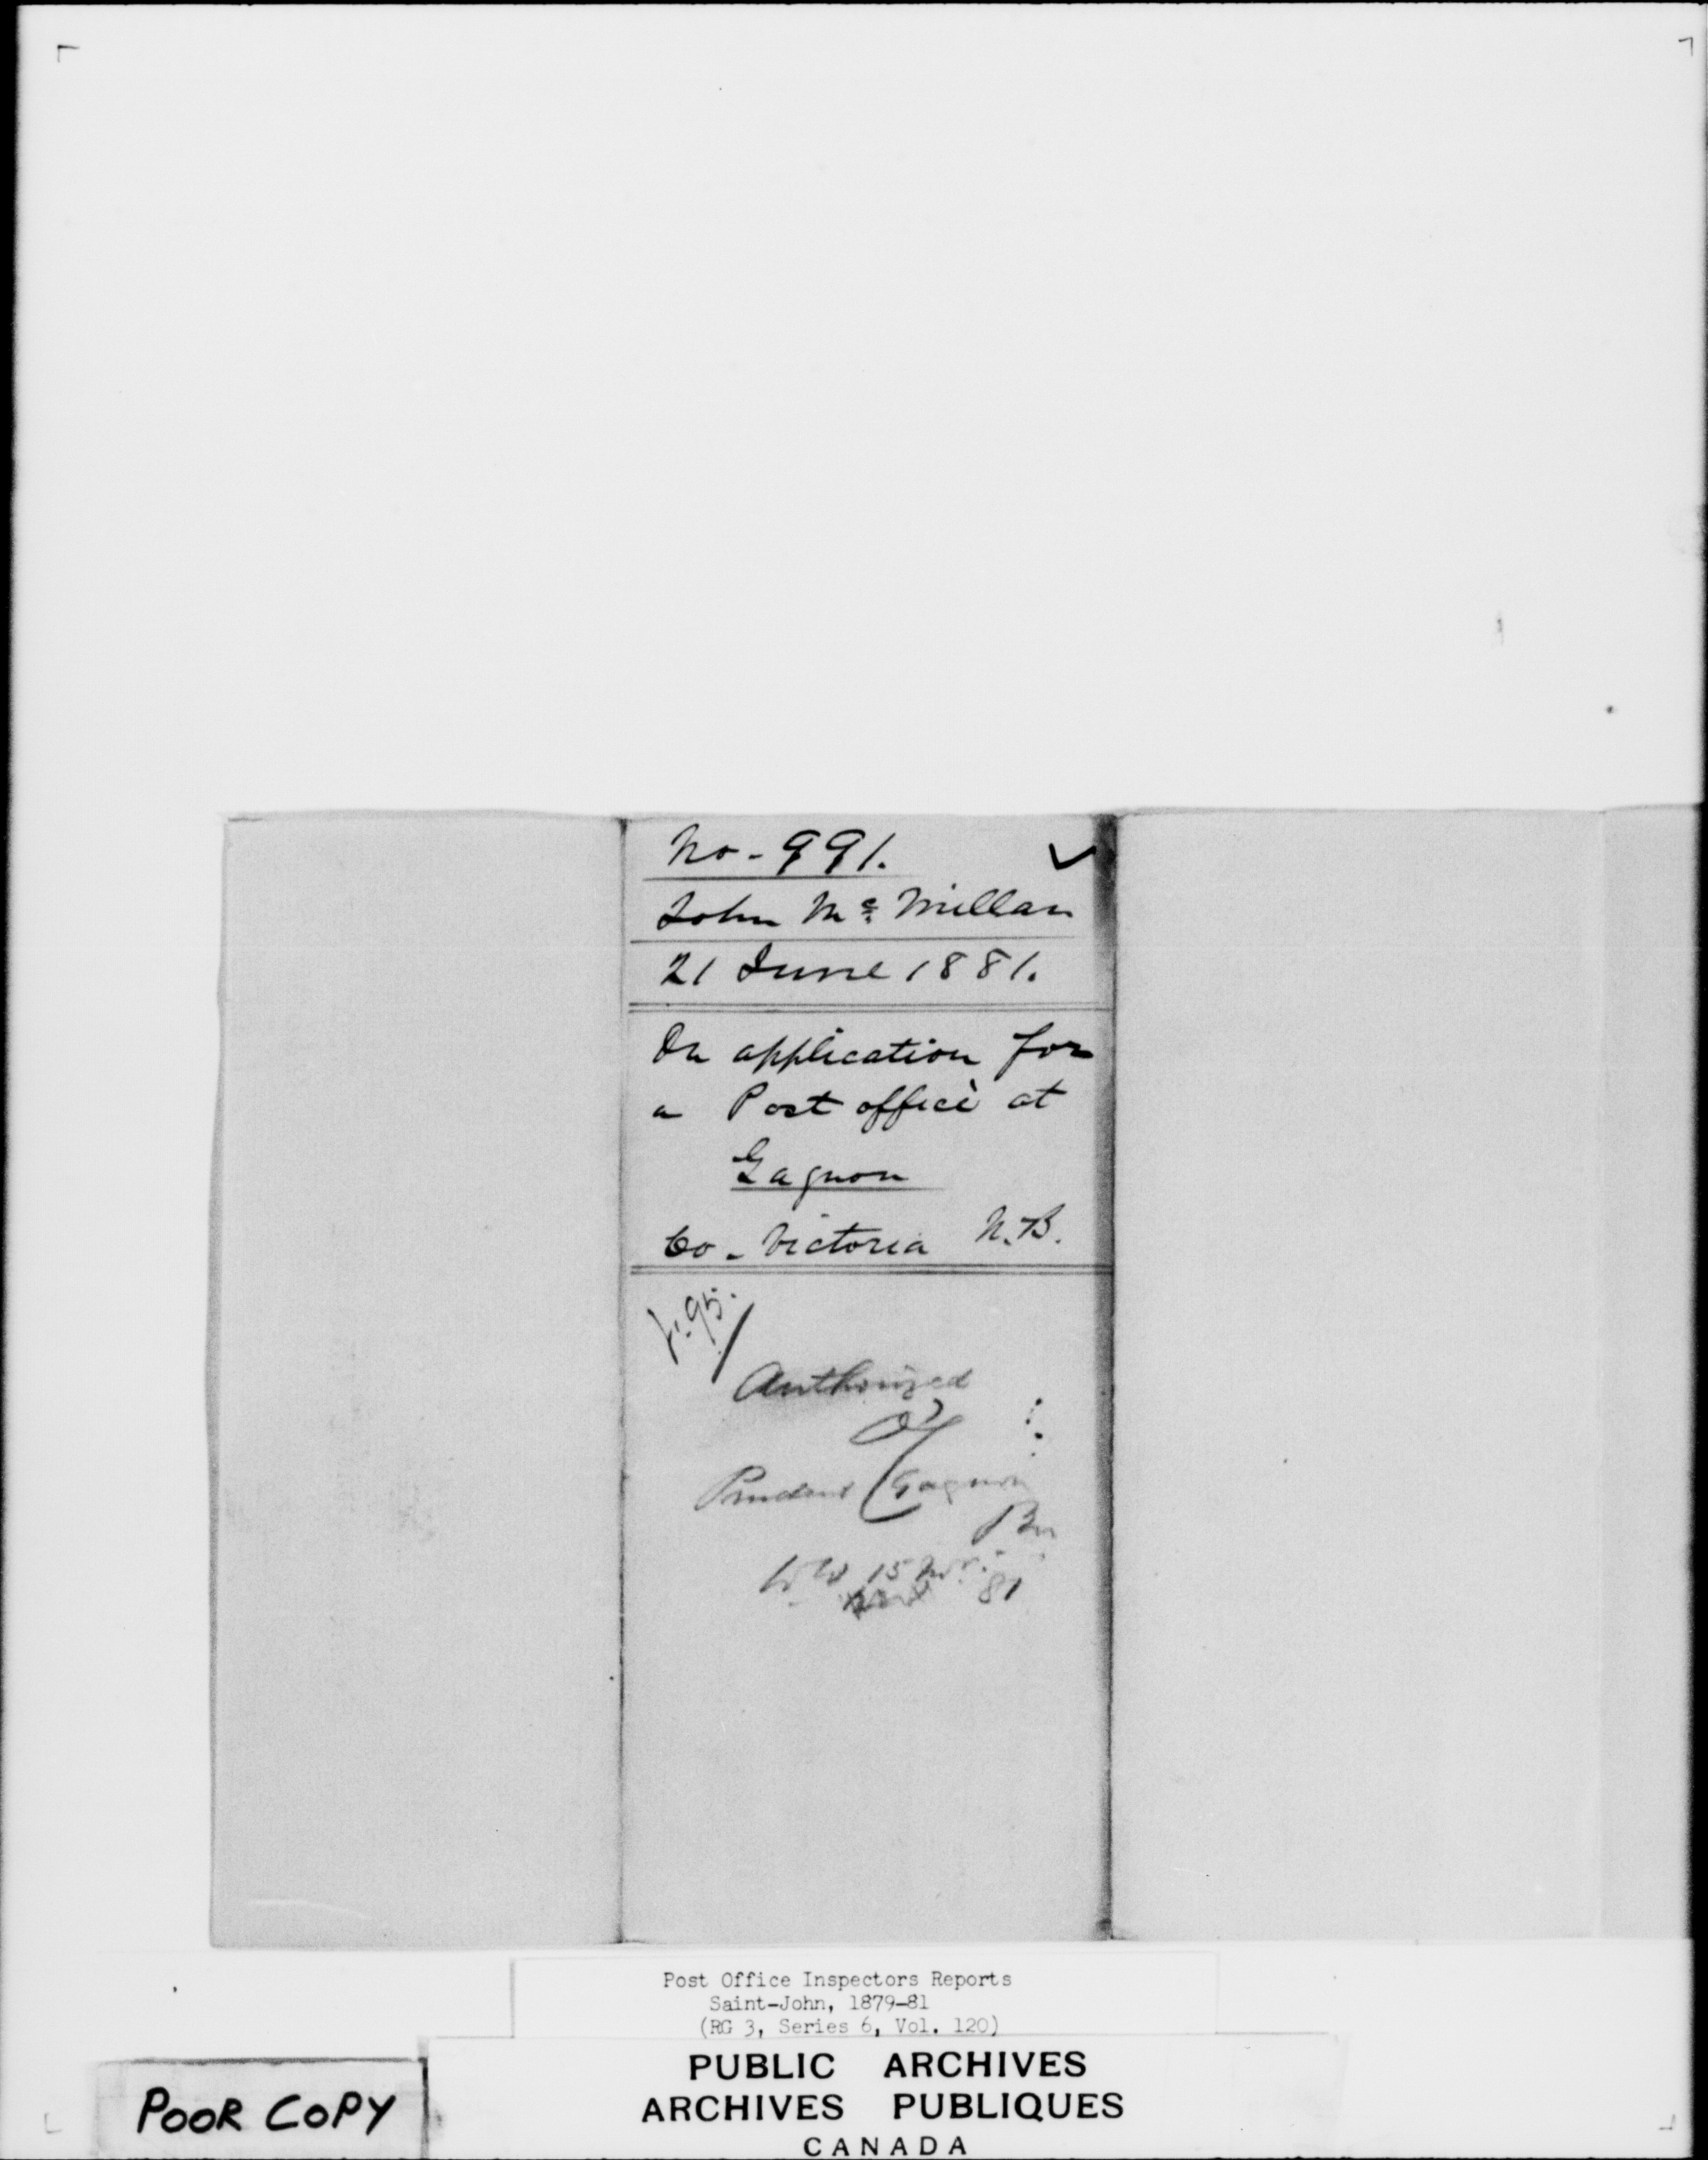 No - 991.
John Mc Millan
21 June 1881.
On application for
a Post office at
Gagnon
Co - Victoria N.B.
Authorized
Gagnon
15
81
Post Office Inspectors Reports
Saint-John, 1879-81
(RG 3, Series 6, Vol. 120)
PUBLIC ARCHIVES
ARCHIVES PUBLIQUES
CANADA
POOR COPY